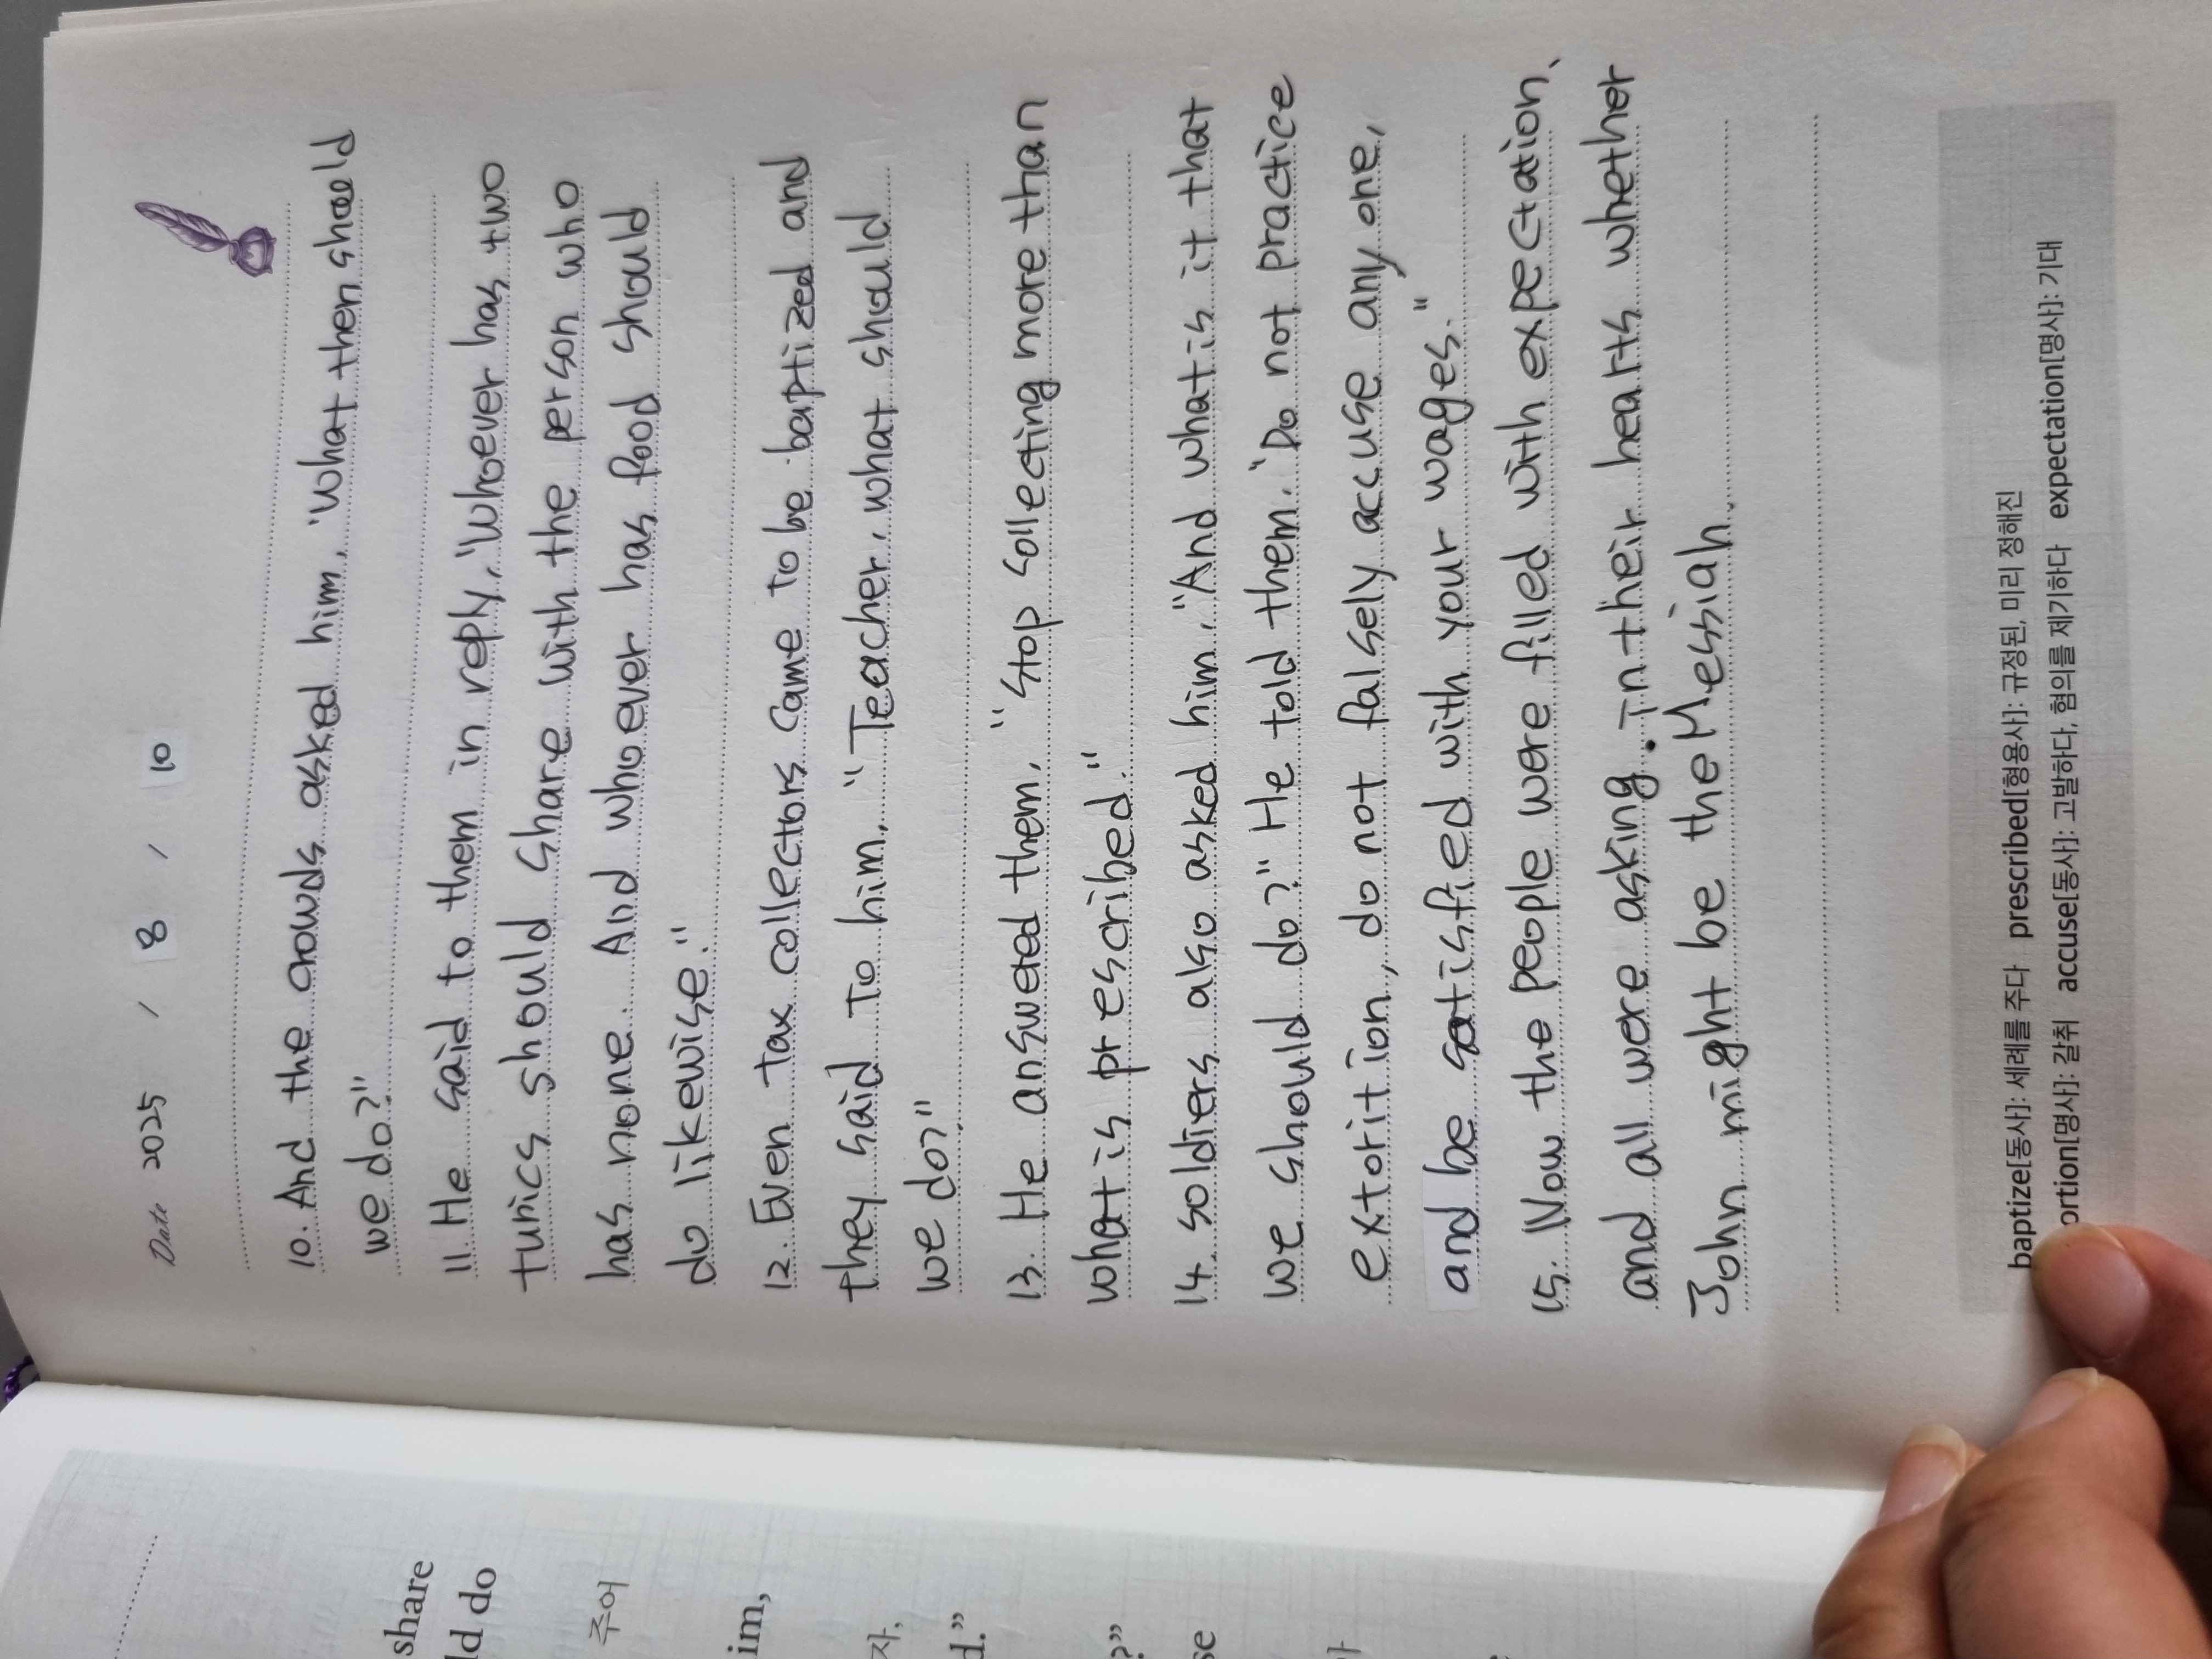 Date 2025 / 8 / 10
10. And the crowds asked him, "What then should
we do?"
11. He said to them in reply, "Whoever has two
tunics should share with the person who
has none. And whoever has food should
do likewise."
12. Even tax collectors came to be baptized and
they said to him, "Teacher, what should
we do?"
13. He answered them, "Stop collecting more than
what is prescribed."
14. Soldiers also asked him, "And what is it that
we should do?" He told them, "Do not practice
extorition, do not falsely accuse any one,
and be satisfied with your wages."
15. Now the people were filled with expectation,
and all were asking in their hearts whether
John might be the Messiah.
baptize[동사]: 세례를 주다 prescribed[형용사]: 규정된, 미리 정해진
ortion[명사]: 갈취 accuse[동사]: 고발하다, 혐의를 제기하다 expectation[명사]: 기대
share
ld do
주어
im,
자,
d."
?"
se